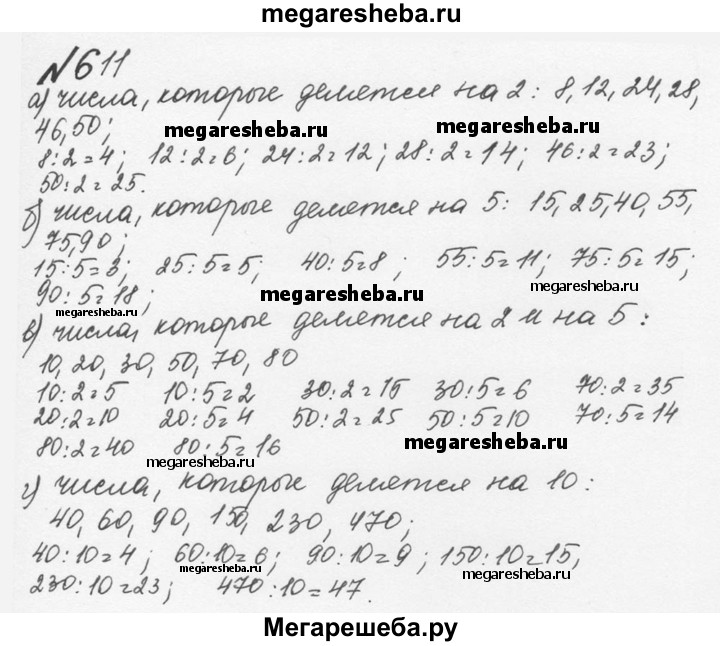 megaresheba.ru
№611
а) числа, которые делятся на 2: 8, 12, 24, 28,
46, 50;
megaresheba.ru megaresheba.ru
8:2=4; 12:2=6; 24:2=12; 28:2=14; 46:2=23;
50:2=25.
б) числа, которые делятся на 5: 15, 25, 40, 55,
75, 90;
15:5=3; 25:5=5; 40:5=8; 55:5=11; 75:5=15;
90:5=18;
megaresheba.ru megaresheba.ru megaresheba.ru
в) числа, которые делятся на 2 и на 5:
10, 20, 30, 50, 70, 80
10:2=5 10:5=2 30:2=15 30:5=6 70:2=35
20:2=10 20:5=4 50:2=25 50:5=10 70:5=14
80:2=40 80:5=16 megaresheba.ru
megaresheba.ru
г) числа, которые делятся на 10:
40, 60, 90, 150, 230, 470;
40:10=4; 60:10=6; 90:10=9; 150:10=15,
megaresheba.ru megaresheba.ru
230:10=23; 470:10=47.
Мегарешеба.ру